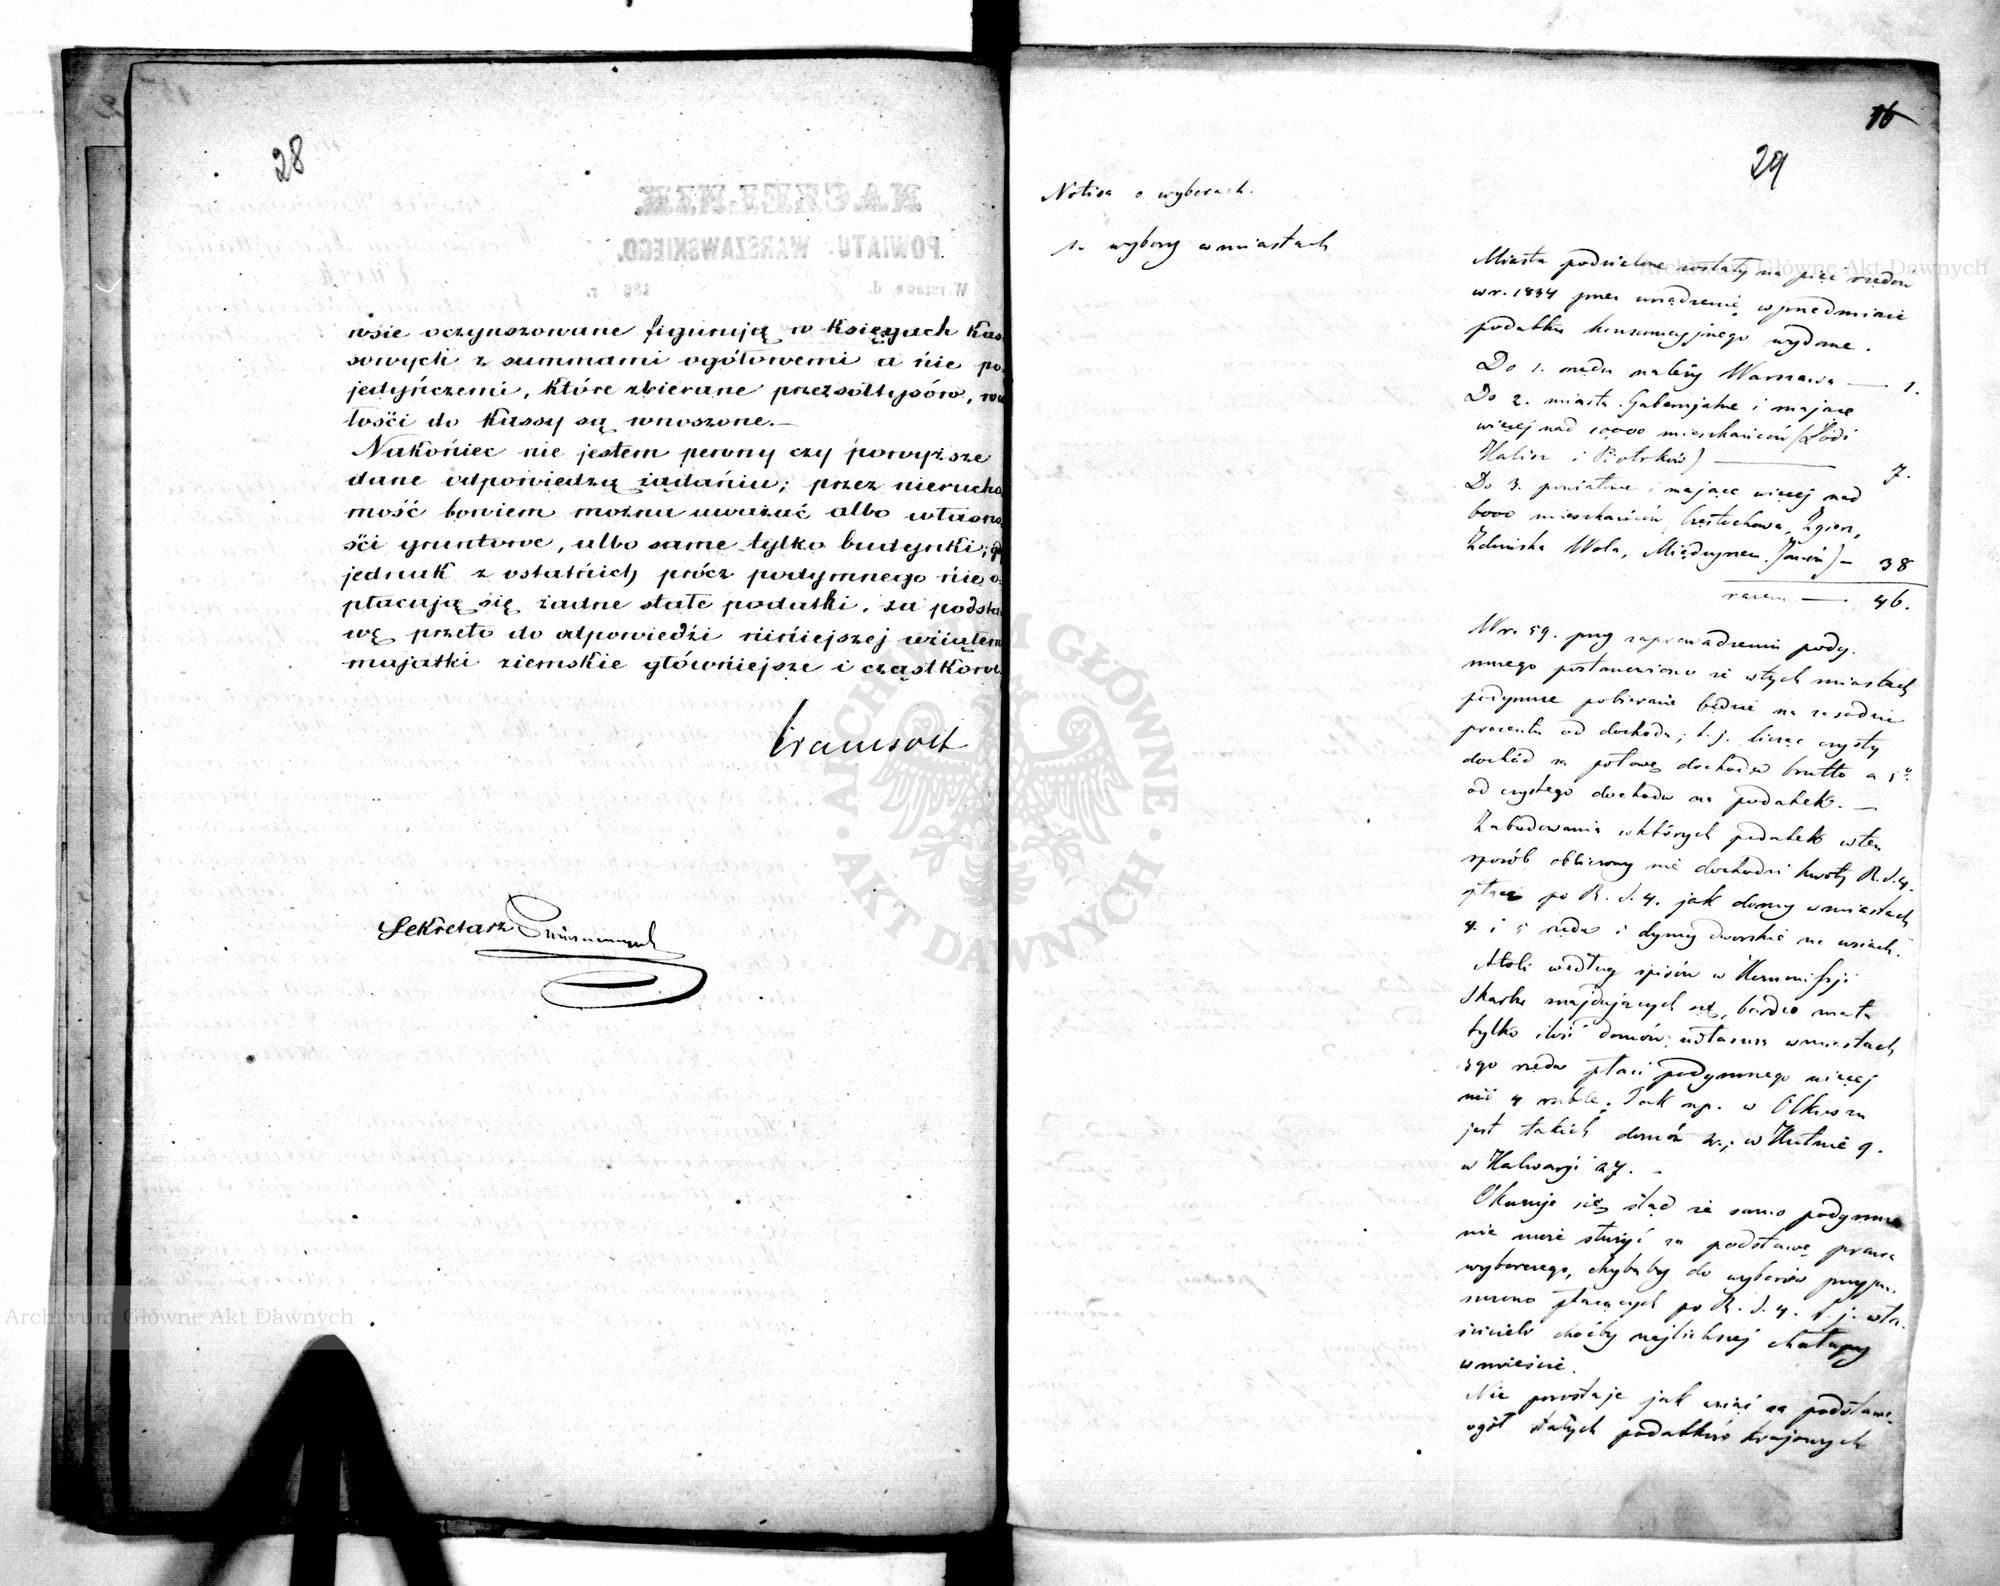 28
wsie oczynszowane figurują w Księgach Kas-
sowych z summami ogółowemi a nie po-
jedyńczemi, które zbierane przez sołtysów, w ca
łości do Kassy są wnoszone.—
Nakoniec nie jestem pewny czy powyższe
dane odpowiedzą żądaniu; przez nierucho-
mość bowiem można uważać albo własno-
ści gruntowe, albo same tylko budynki; gdy
jednak z ostatnich prócz podymnego nie o-
płacują się żadne stałe podatki, za podsta-
wę przeto do odpowiedzi niniejszej wziąłem
majątki ziemskie główniejsze i cząstkowe.
Sekretarz
16
29
Notisa o wyborach.
1. wybory w miastach
Miasta podzielone zostały na pięć rzędów
w r. 1834 przez urządzenie w przedmiocie
podatku konsumcyjnego wydane.
Do 1. rzędu należy Warszawa — 1.
Do 2. miasta Gubernjalne i mające
więcej nad 10,000 mieszkańców (Łódź
Kalisz i Piotrków) — 7.
Do 3. powiatowe i mające więcej nad
6000 mieszkańców (Częstochowa, Zgierz,
Zduńska Wola, Międzyrzec, Janów) — 38
razem — 46.
W r. 59. przy zaprowadzeniu pody-
mnego postanowiono że w tych miastach
podymne pobierane będzie na zasadzie
procentu od dochodu; t. j. licząc czysty
dochód za połowę dochodu brutto a 5%
od czystego dochodu na podatek. —
Zabudowania w których podatek w ten
sposób obliczony nie dochodzi kwoty R. S. 4.
płacą po R. S. 4. jak domy w miastach
4. i 5 rzędu i dymy dworskie na wsiach.
Atoli według spisów w Kommissji
Skarbu znajdujących się, bardzo mała
tylko ilość domów w miastach
3go rzędu płaci podymnego więcej
niż 4 ruble. Tak np. w Olkuszu
jest takich domów 2.; w Kutnie 9.
w Kalwarji 27. —
Okazuje się stąd że samo podymne
nie może służyć za podstawę prawa
wyborczego, chybaby do wyborów przypu-
szczono płacących po R. S. 4. t. j. wła-
ścicieli choćby najlichszej chałupy
w mieście.
Nie pozostaje jak wziąć za podstawę
ogół stałych podatków krajowych
Archiwum Główne Akt Dawnych
Archiwum Główne Akt Dawnych
ARCHIWUM GŁÓWNE · AKT DAWNYCH ·